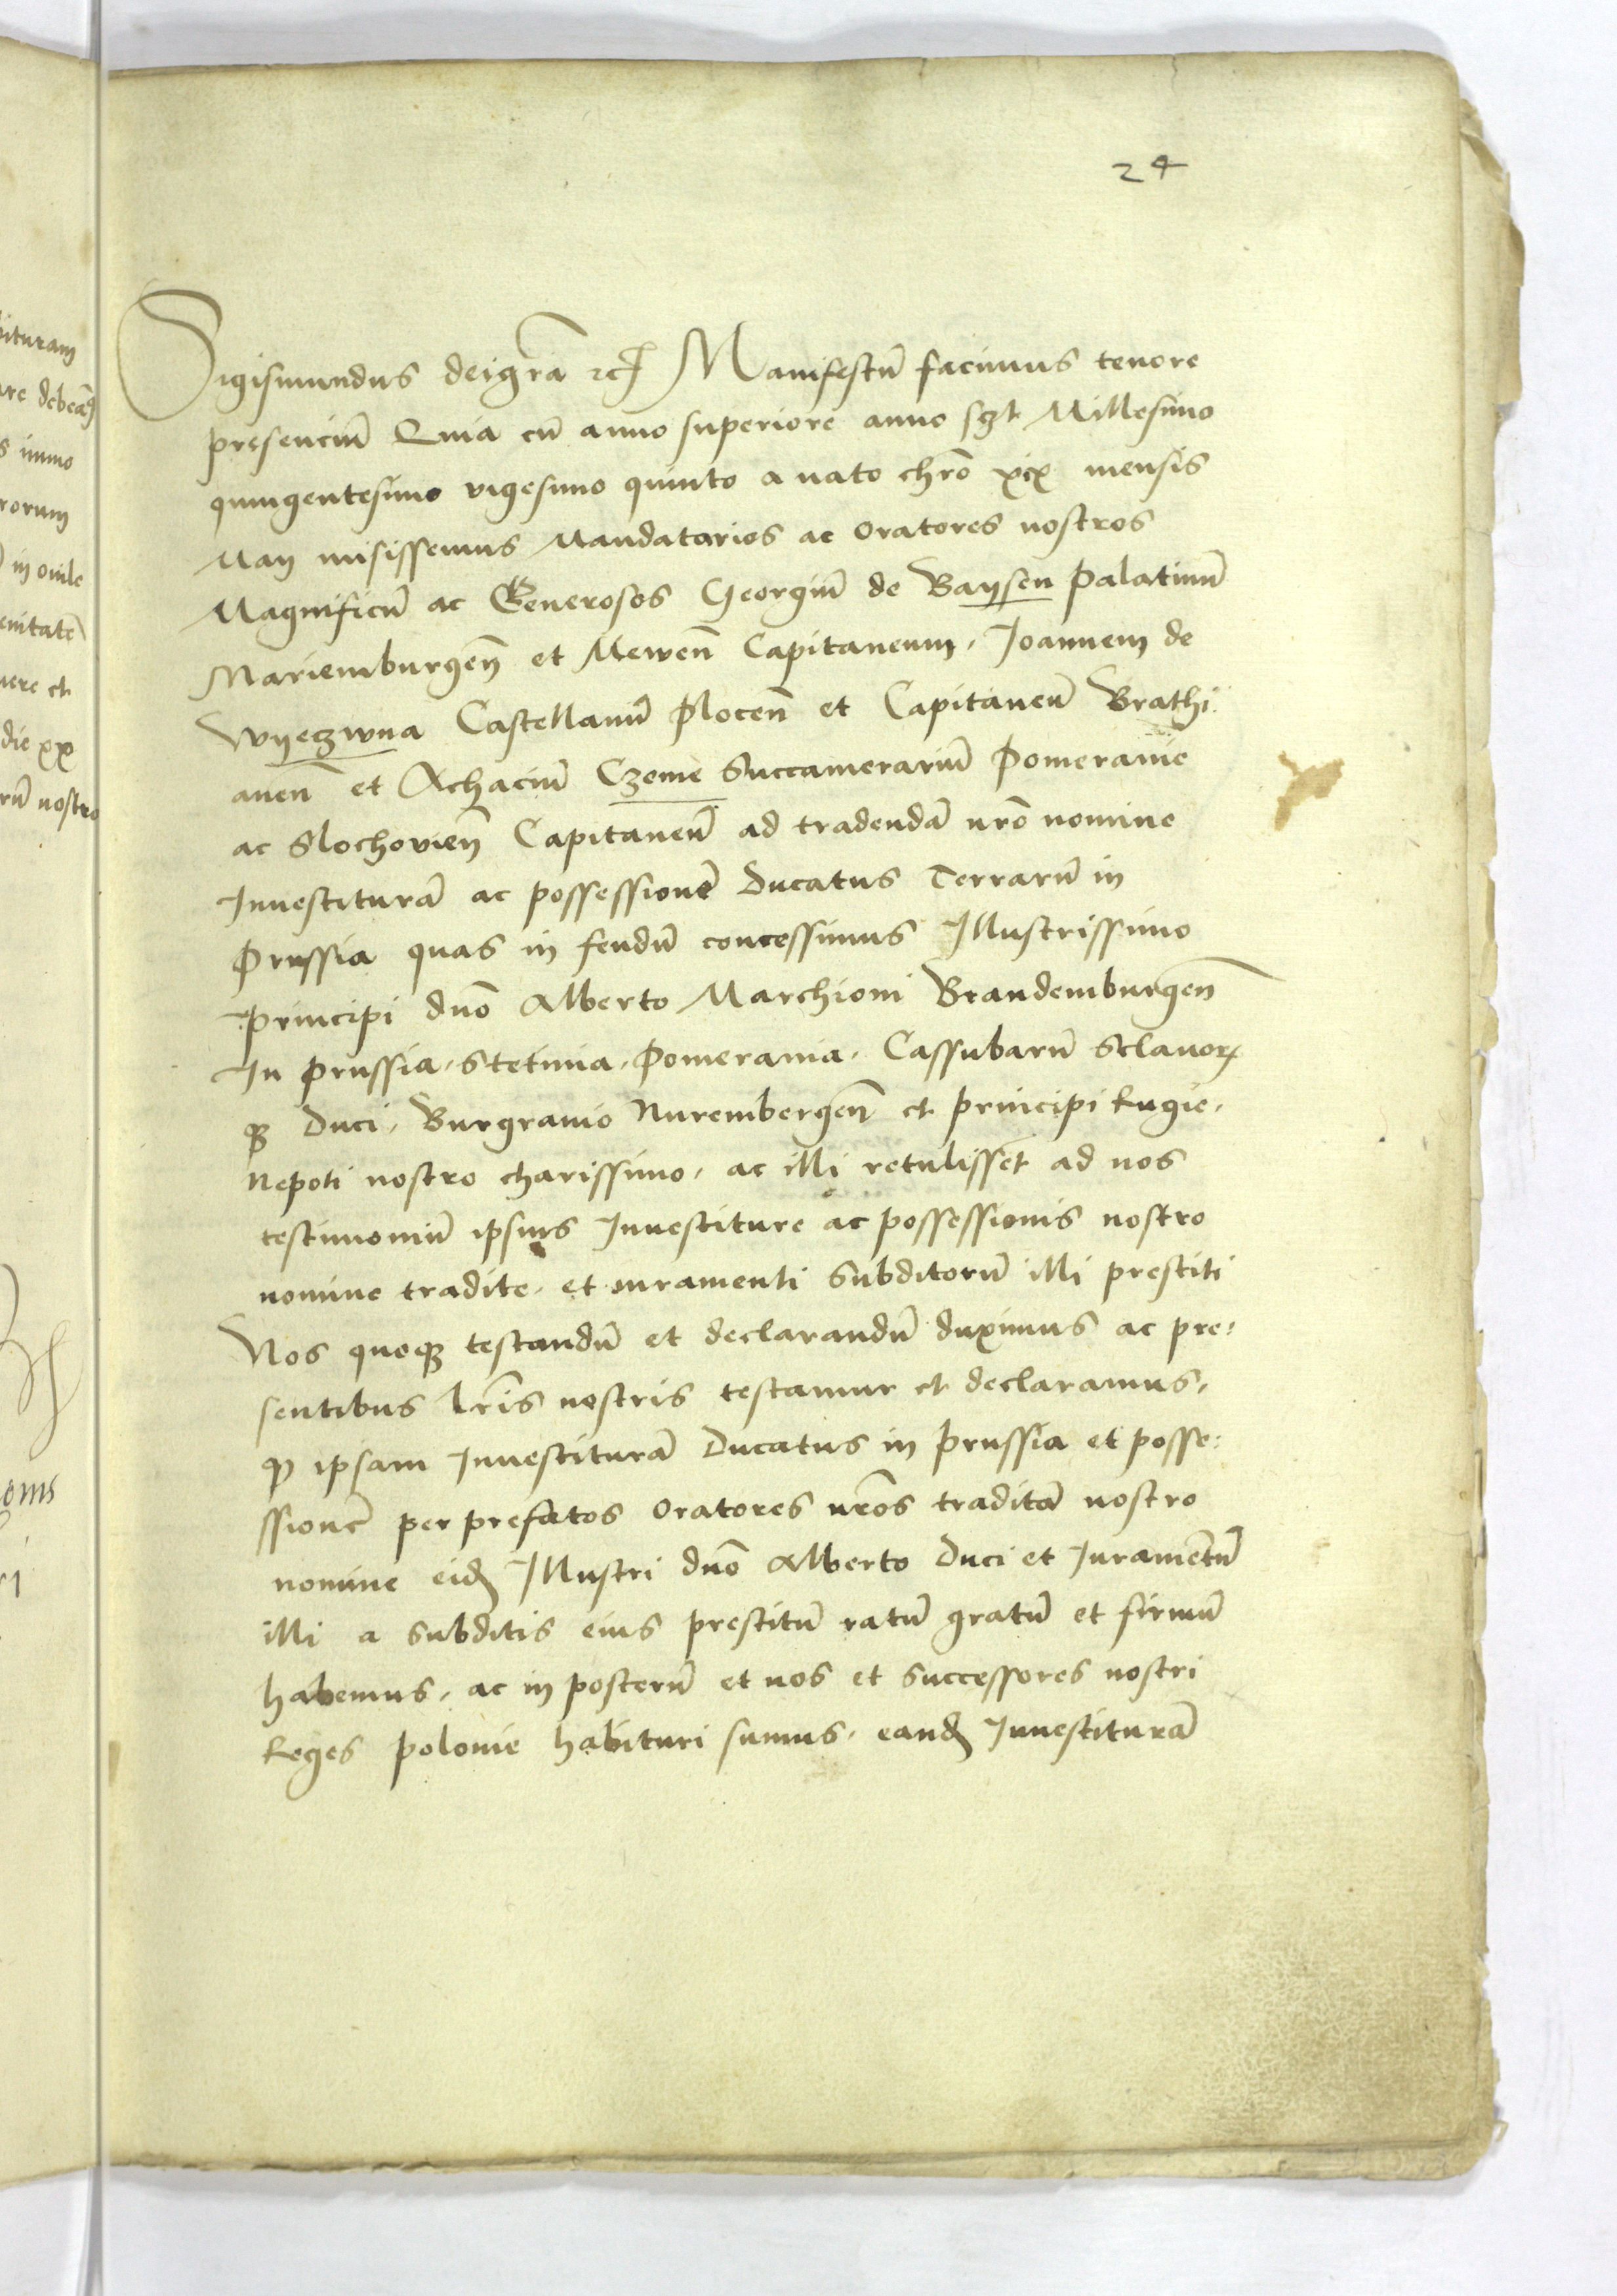 24
Sigismundus dei gr̃a etc Manifestũ facimus tenore
presenciũ Quia cũ anno superiore anno sc̃lt Millesimo
quingentesimo vigesimo quinto a nato chr̃o xix mensis
Maij misissemus Mandatarios ac oratores nostros
Magnificũ ac Generosos Georgiũ de Baÿsen palatinũ
Mariemburgeñ et Meweñ Capitaneum, Joannem de
Wyeczwna Castellanũ Ploceñ et Capitaneũ Brathi
aneñ et Achaciũ Czeme Succamerariũ Pomeranie
ac Slochovieñ Capitaneũ ad tradendã nr̃o nomine
Inuestiturã ac possessionẽ Ducatus Terrarũ in
Prussia quas in feudũ concessimus Illustrissimo
Principi dñо Alberto Marchioni Brandemburgeñ
In prussia, Stetinia, Pomerania, Cassubarũ Sclauorꝝ
qꝫ Duci, Burgrauio Nurembergeñ et principi Rugie,
Nepoti nostro charissimo, ac illi retulissẽt ad nos
testimoniũ ipsius Inuestiture ac possessionis nostro
nomine tradite, et iuramenti Subditorũ illi prestiti
Nos quoqꝫ testandũ et declarandũ duximus ac pre:
sentibus lr̃is nostris testamur et declaramus,
ꝙ ipsam Inuestiturã Ducatus in prussia et posse:
ssionẽ per prefatos Oratores nr̃os traditã nostro
nomine eidẽ Illustri dño Alberto Duci et Juramentũ
illi a subditis eius prestitũ ratũ gratũ et firmũ
habemus, ac in posterũ et nos et successores nostri
Reges polonie habituri sumus, eandẽ Inuestiturã
bituram
are debeãt
s immo
rorum
in ouile
enitatẽ
uere et
die xx
rũ nostro